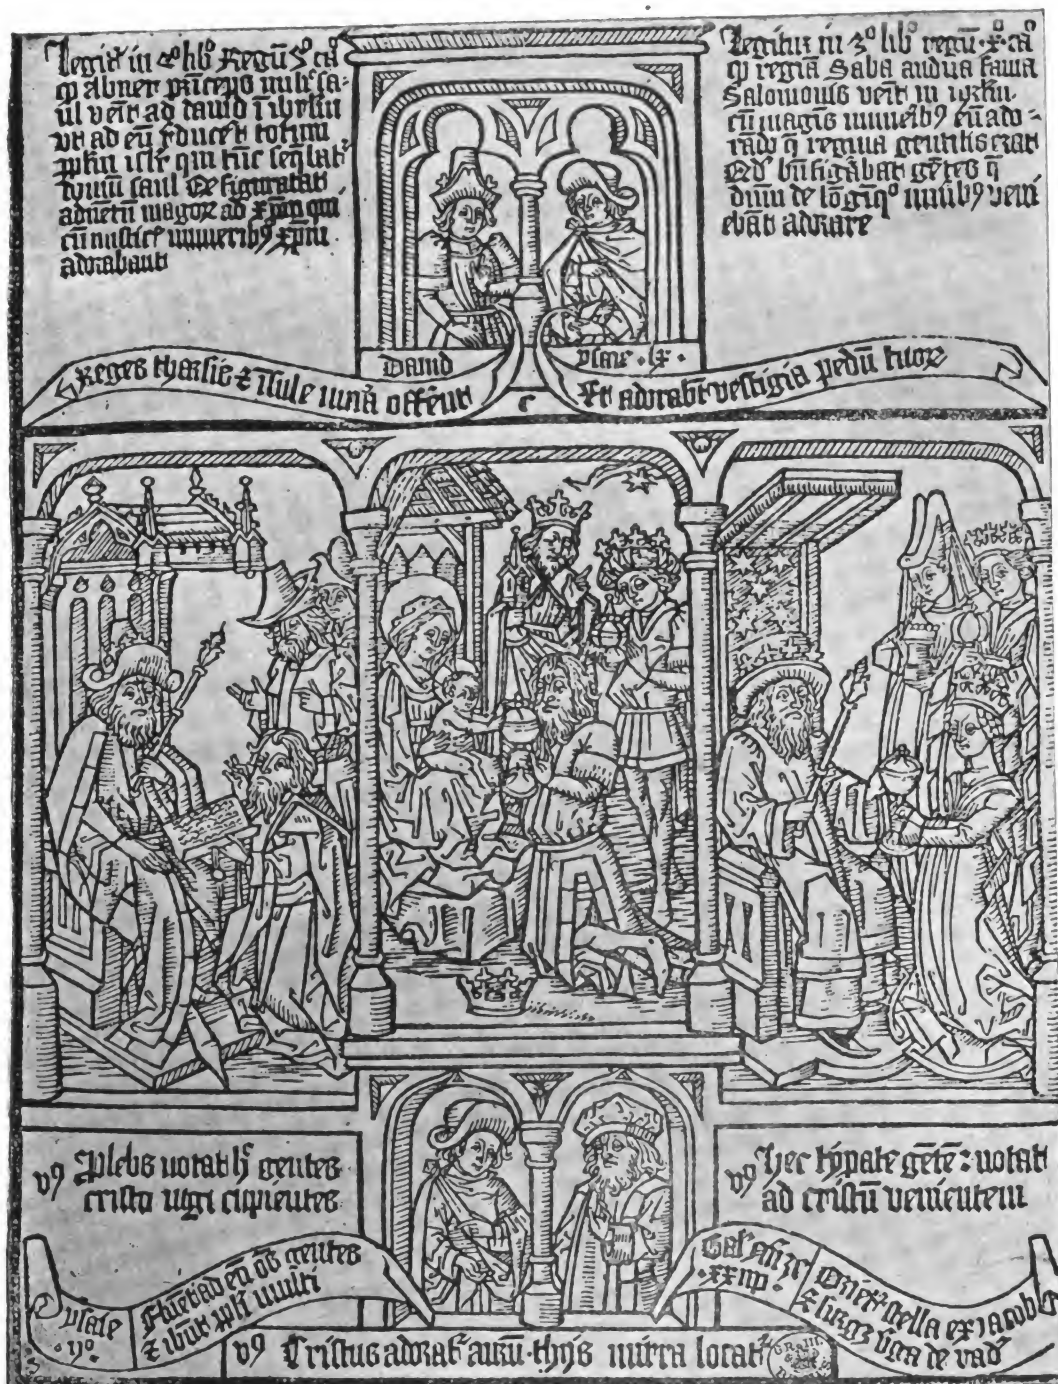 Legit̄ in 2º libº Regū 3º ca
qp abner prīceps milit̄ sa-
ul venit ad dauid ī ihrl̄m
vt ad eū rduceret totum
pplm isrl̄ qui tūc seq̄bat̄
domū saul Qd̄ figurabat
aduētū magoꝝ ad xp̄m qui
cū misticꝭ muneribꝰ xp̄m
adorabant
Legitur in 3º libº regū ·xº ca
qp regīa Saba audita fama
Salomonis venit in ihrl̄m
cū magnis muneribꝰ eū ado-
rādo q̄ regina gentilis erat
Qd̄ bn̄ figābat gētes q̄
dn̄m de lōgīqº munibꝰ veni
ebāt adorare
Dauid
ysaie · lx ·
Reges tharsis ⁊ īsule mun̄a offerūt
c
Et adorabūt vestigia pedū tuoꝝ
vꝰ Plebs notat hꝭ gentes
cristo iūgi cupientes
vꝰ Hec typate gētē : notat
ad cristū venientem
ysaie
ijº
Fluēt ad eū oēs gentes
⁊ ibūt ppli multi
·xxiiij·
Oriet̄ stella ex iacob
⁊ surget virga de
vꝰ Cristus adorat̄ aurū · thus mirra locat̄